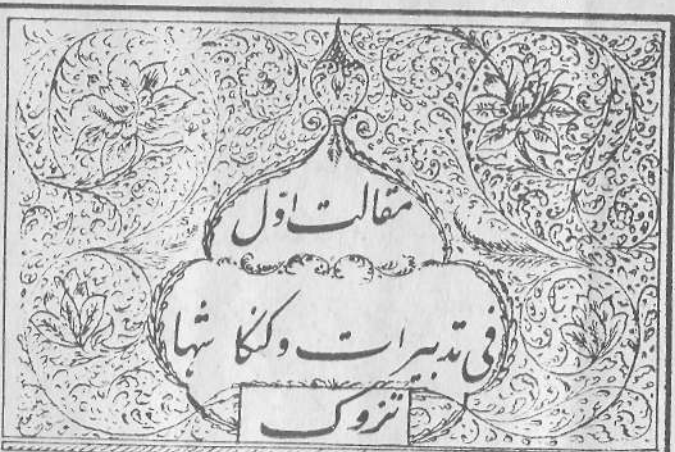 مقالت اوّل
فی تدبیرات و کنکا شها
تزوک